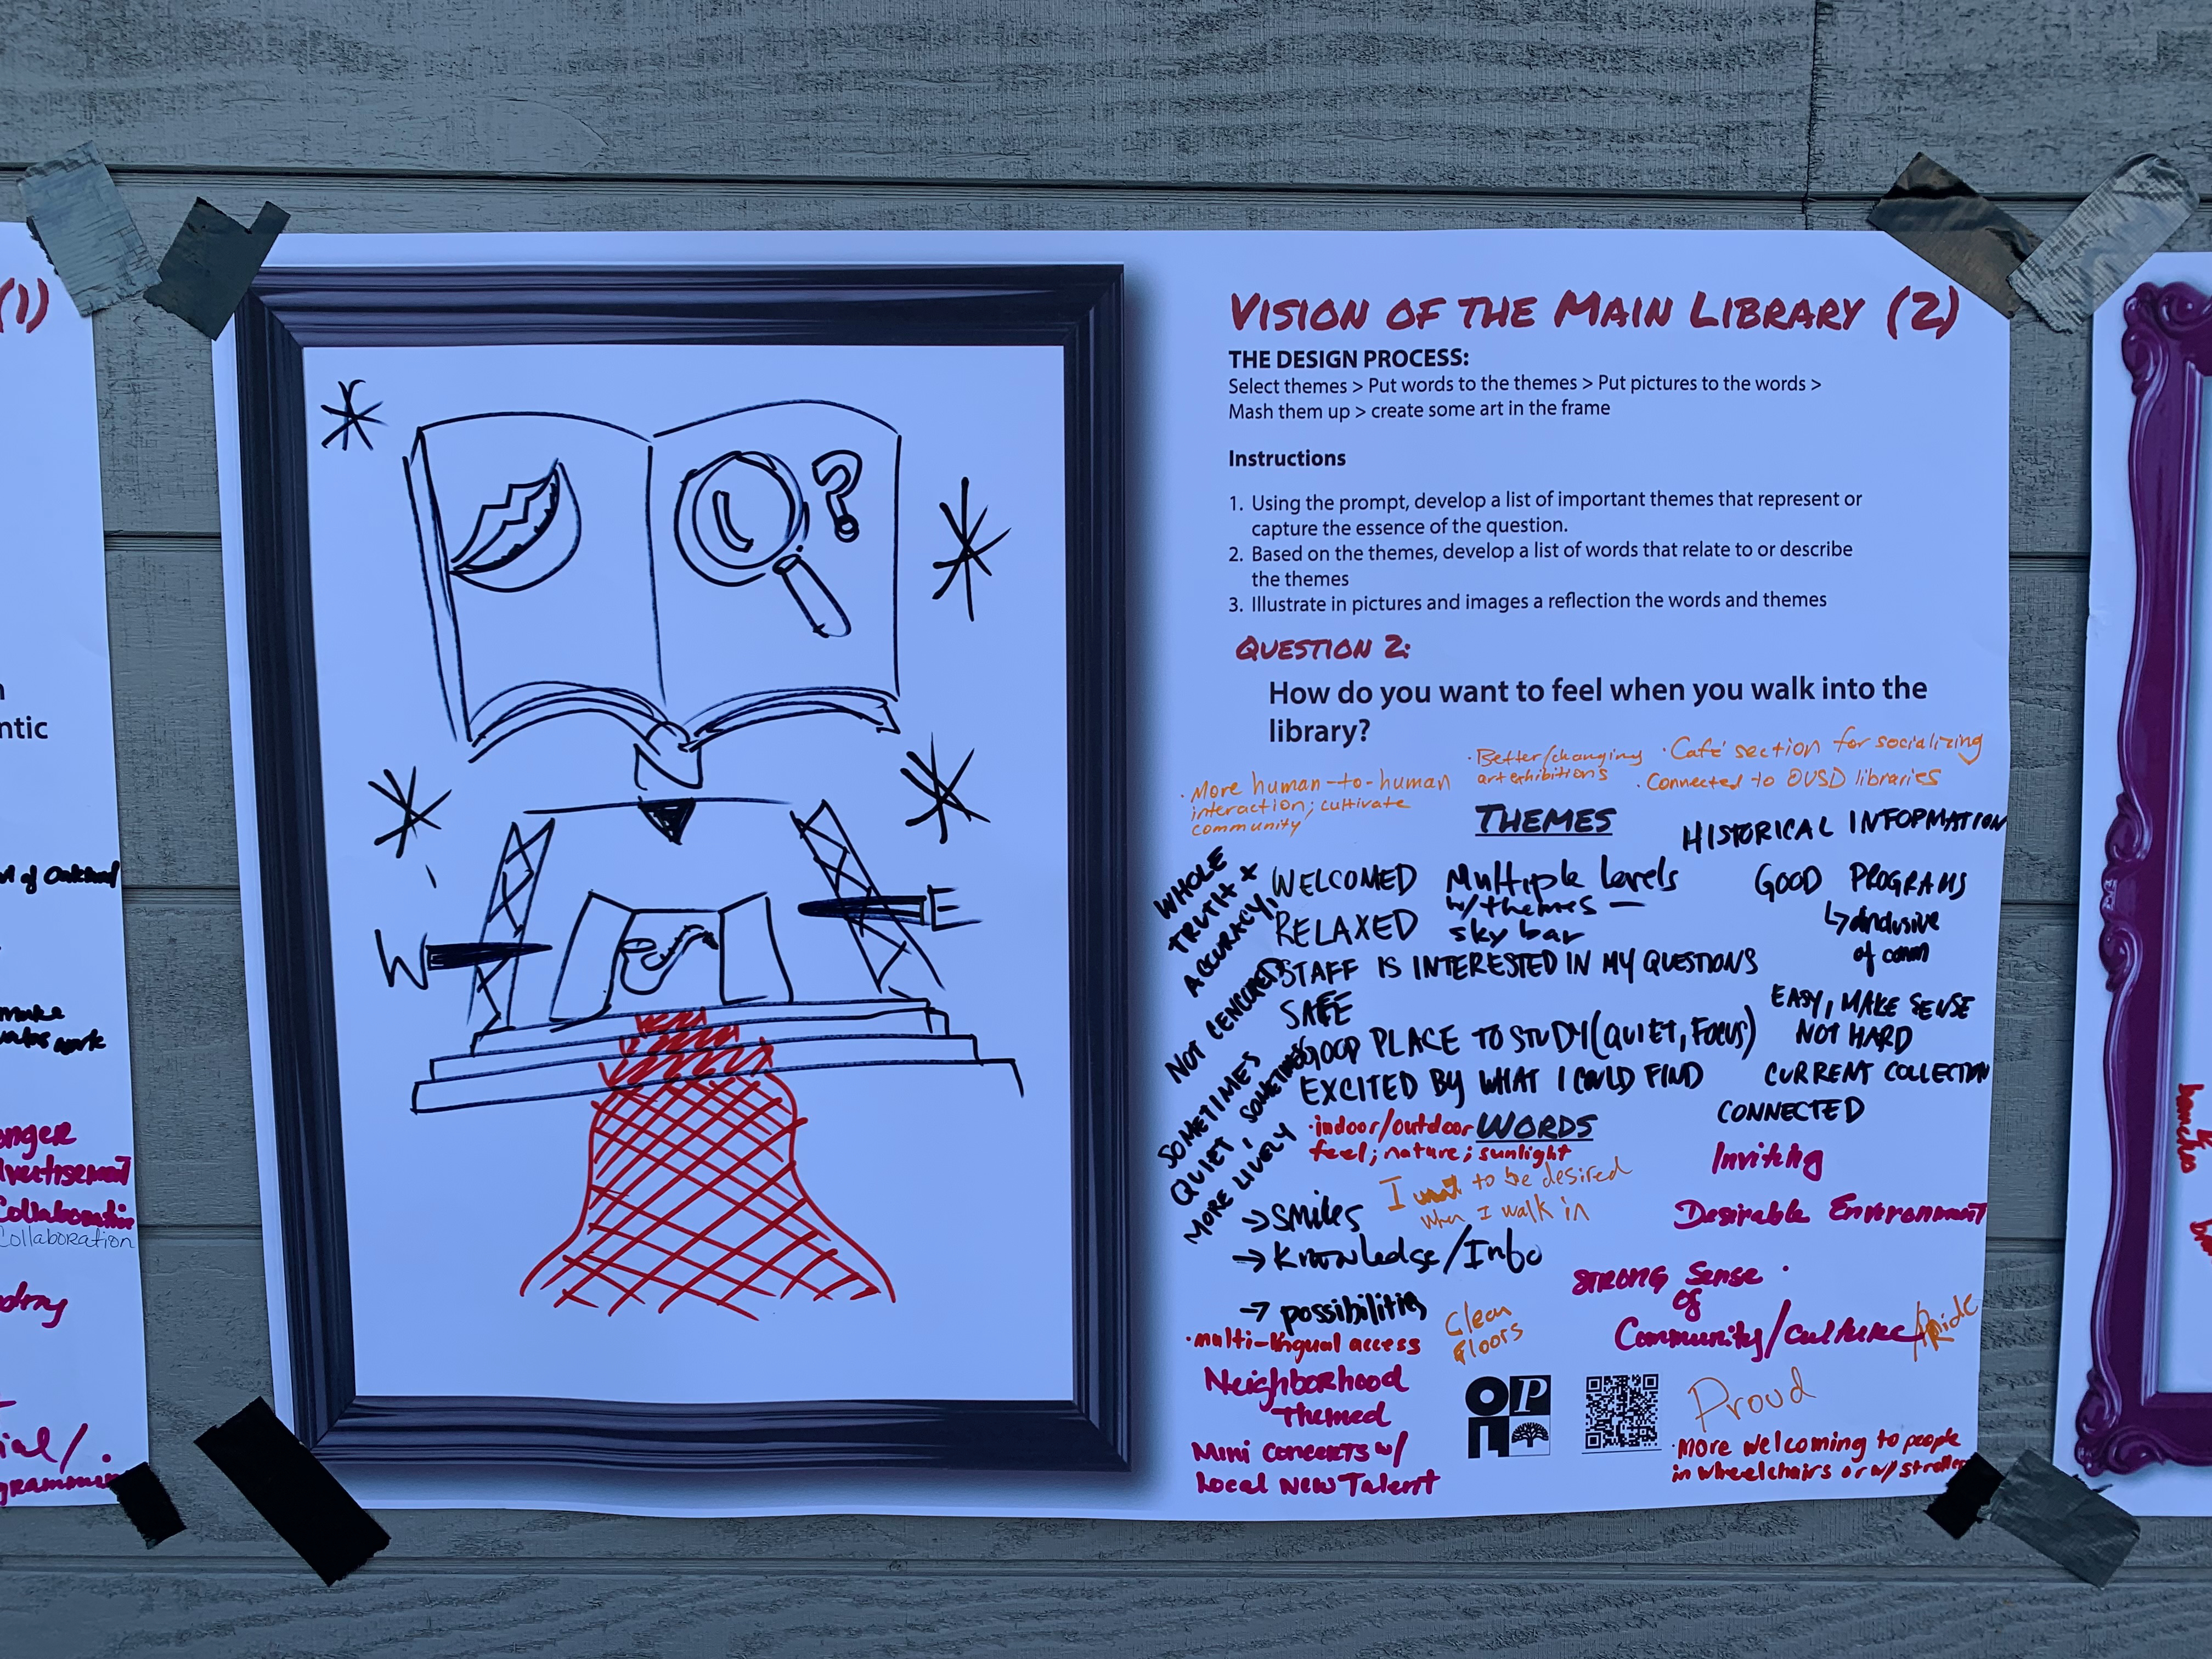 (1)
ntic
of Oakland
make
work
Collaboration
VISION OF THE MAIN LIBRARY (2)
THE DESIGN PROCESS:
Select themes > Put words to the themes > Put pictures to the words >
Mash them up > create some art in the frame
Instructions
1. Using the prompt, develop a list of important themes that represent or
capture the essence of the question.
2. Based on the themes, develop a list of words that relate to or describe
the themes
3. Illustrate in pictures and images a reflection the words and themes
QUESTION 2:
How do you want to feel when you walk into the
library?
· More human-to-human
interaction; cultivate
community
· Better/changing
art exhibitions
· Café section for socializing
· Connected to OUSD libraries
THEMES
WHOLE
TRUTH +
ACCURACY,
NOT CENCORED
SOMETIMES
QUIET, SOMETIMES
MORE LIVELY
WELCOMED
RELAXED
Multiple levels
w/ themes —
sky bar
HISTORICAL INFORMATION
GOOD PROGRAMS
↳ inclusive
of comm
STAFF IS INTERESTED IN MY QUESTIONS
SAFE
GOOD PLACE TO STUDY (QUIET, FOCUS)
EXCITED BY WHAT I COULD FIND
EASY, MAKE SENSE
NOT HARD
CURRENT COLLECTION
CONNECTED
WORDS
· indoor/outdoor
feel; nature; sunlight
I want to be desired
when I walk in
→ smiles
→ Knowledge/Info
→ possibilities
· multi-lingual access
Clean
floors
Neighborhood
Themed
Mini Concerts w/
Local New Talent
Inviting
Desirable Environment
STRONG Sense
of
Community/culture/Pride
Proud
· More welcoming to people
in wheelchairs or w/ strollers
OPL
W
E
?